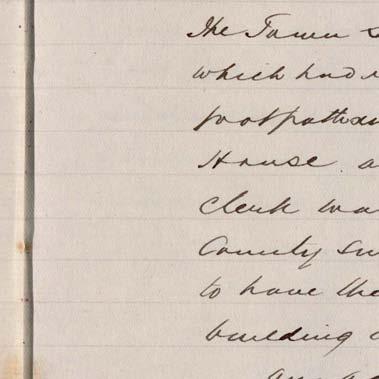 The Town
which had
footpath
House
Clerk wa
County Su
to have the
building